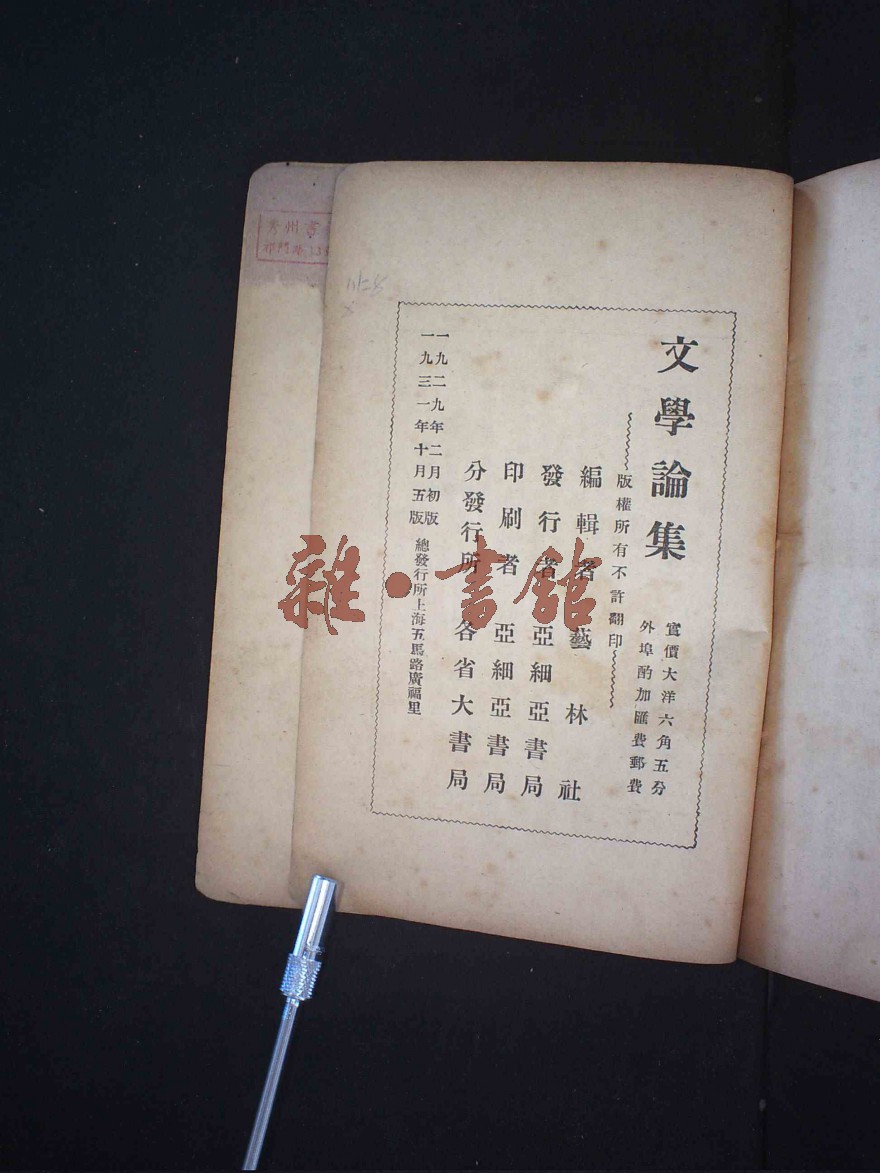 文學論集
實價大洋六角五分
外埠酌加匯費郵費
版權所有不許翻印
編輯者 藝林社
發行者 亞細亞書局
印刷者 亞細亞書局
分發行所 各省大書局
一九二九年二月初版
一九三一年十月五版
總發行所上海五馬路廣福里
雜·書館
秀州書